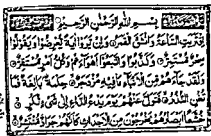 بسم الله الرحمن الرحيم
اقتربت الساعة وانشق القمر وإن يروا آية يعرضوا ويقولوا
سحر مستمر وكذبوا واتبعوا أهواءهم وكل أمر مستقر
ولقد جاءهم من الأنباء ما فيه مزدجر حكمة بالغة فما
تغن النذر فتول عنهم يوم يدع الداع إلى شيء نكر
خشعا أبصارهم يخرجون من الأجداث كأنهم جراد منتشر